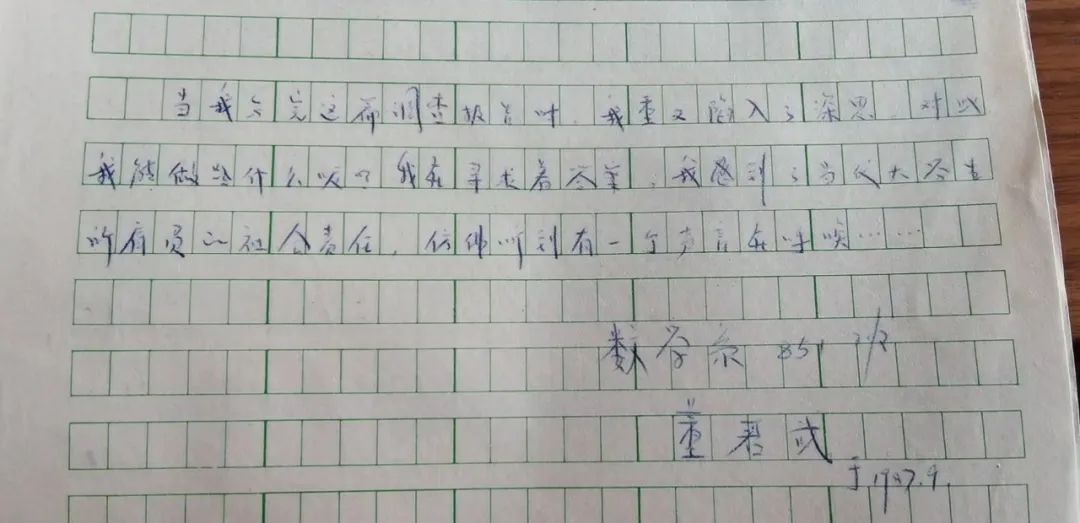 当我写完这篇调查报告时，我重又陷入了深思，对此
我能做些什么呢？我在寻求着答案，我感到了当代大学生
所肩负的社会责任，仿佛听到有一个声音在呼唤……
数学系 851 班
董碧
于1987.9.